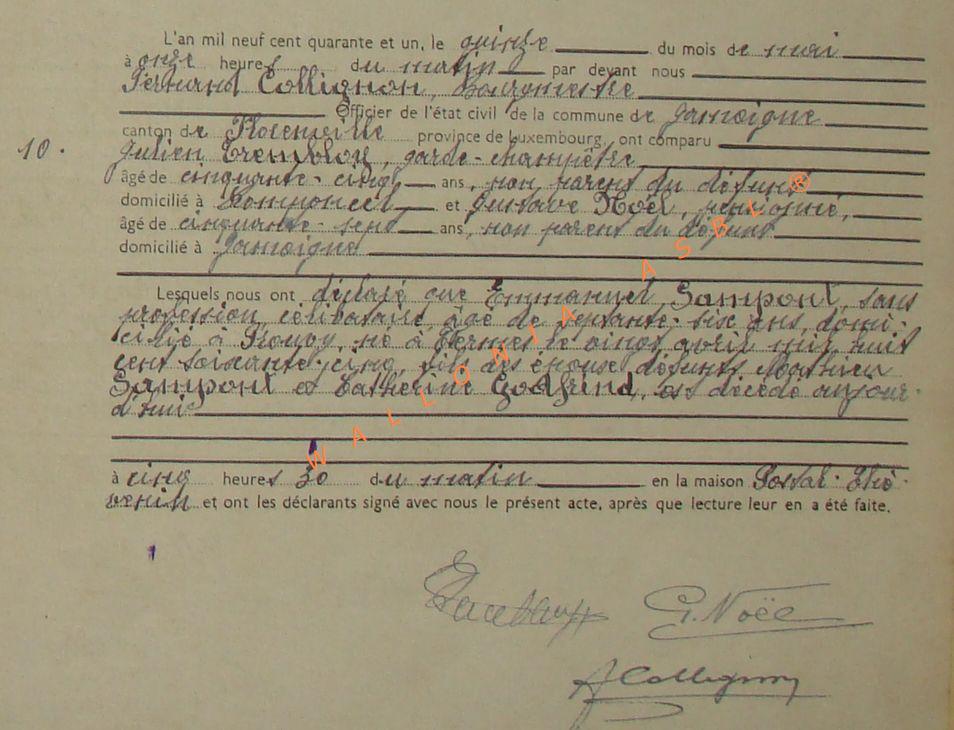 L'an mil neuf cent quarante et un, le quinze du mois de mai
à onze heures du matin par devant nous
Fernand Collignon, Bourgmestre
Officier de l'état civil de la commune de Jamoigne
canton de Florenville province de Luxembourg, ont comparu
10.
Julien Trembloy, garde-champêtre
âgé de cinquante-cinq ans, non parent du défunt
domicilié à Romponcel et Gustave Noël, pensionné,
âgé de cinquante-sept ans, non parent du défunt
domicilié à Jamoigne
Lesquels nous ont déclaré que Emmanuel, Gampont, sans
profession, célibataire, âgé de septante-six ans, domi-
cilié à né à Termes le vingt avril mil huit
cent soixante-cinq, fils des époux défunts Mathieu
Gampont et Catherine Godfrind, est décédé aujour-
d'hui
à cinq heures 30 du matin en la maison
et ont les déclarants signé avec nous le présent acte, après que lecture leur en a été faite.
G. Noël
Collignon
WALLONIA ASBL ®